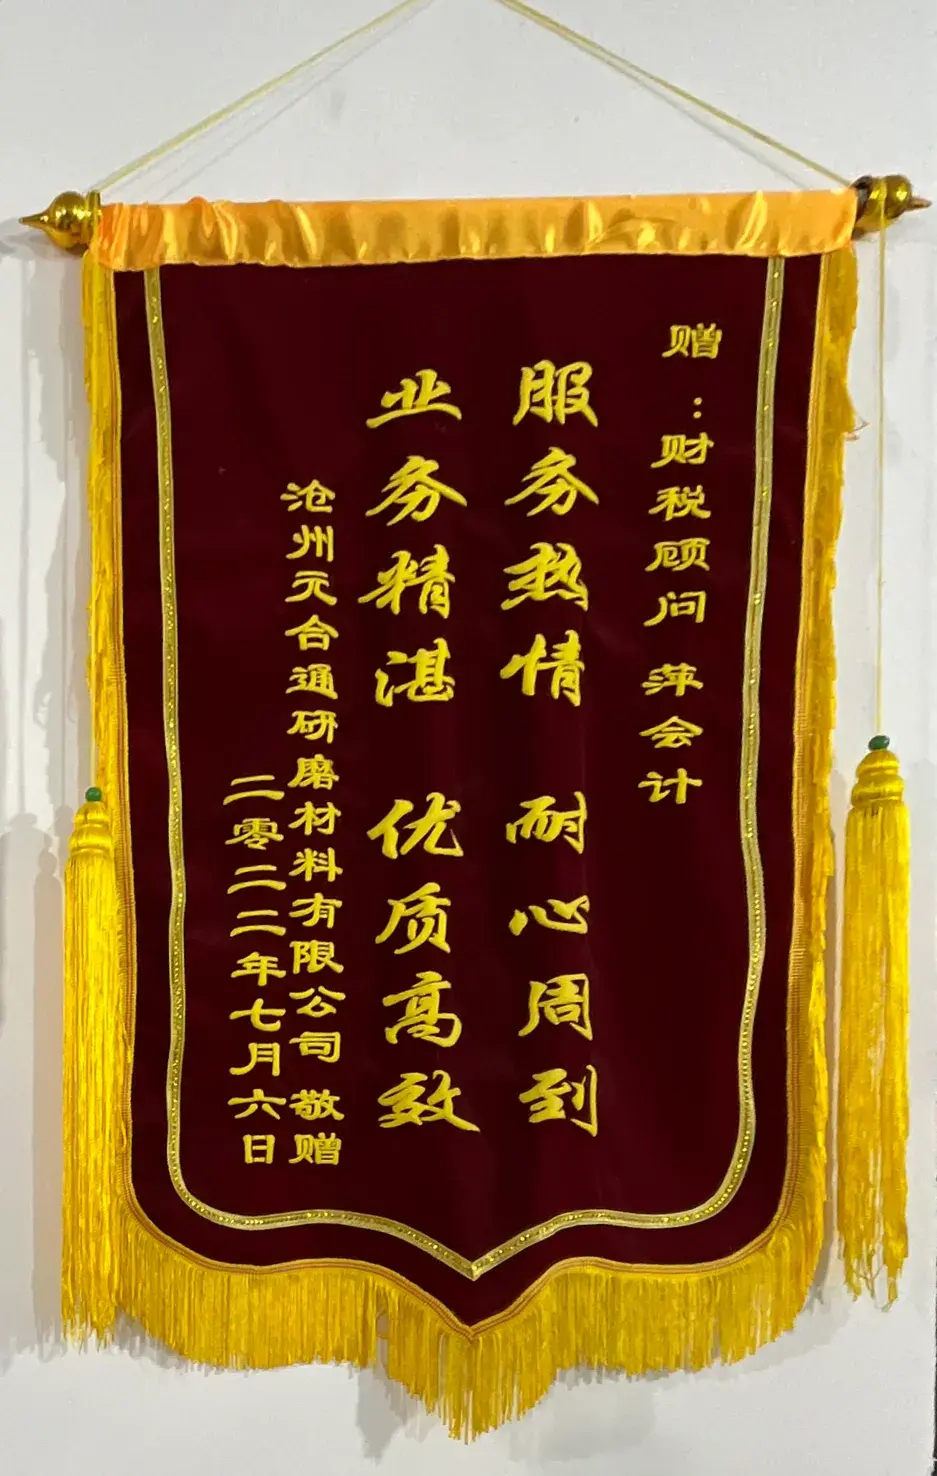 赠:财税顾问 萍会计
服务热情 耐心周到
业务精湛 优质高效
沧州元台通研磨材料有限公司 敬赠
二零二二年七月六日